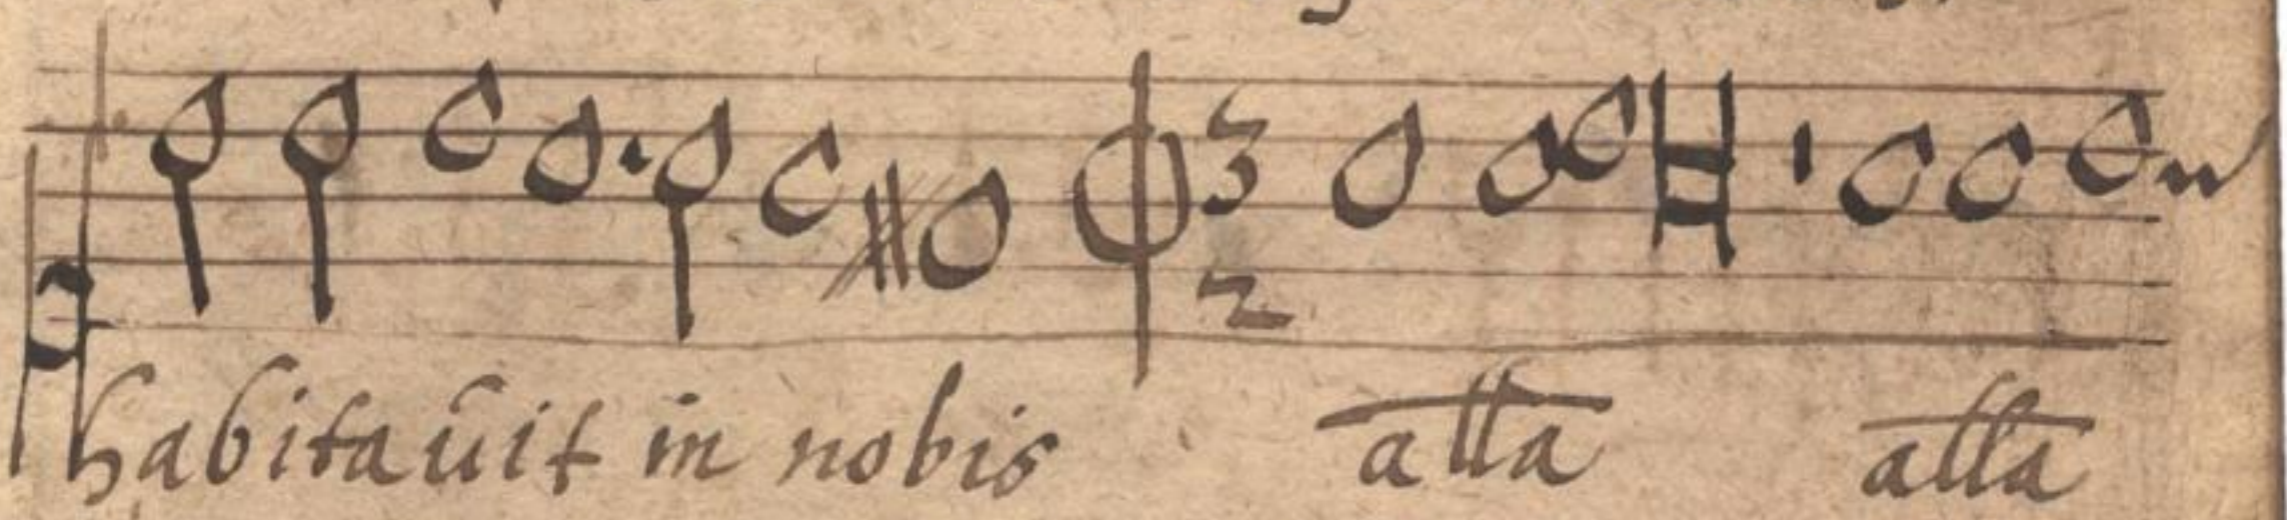 3
2
habitauit in nobis alla alla